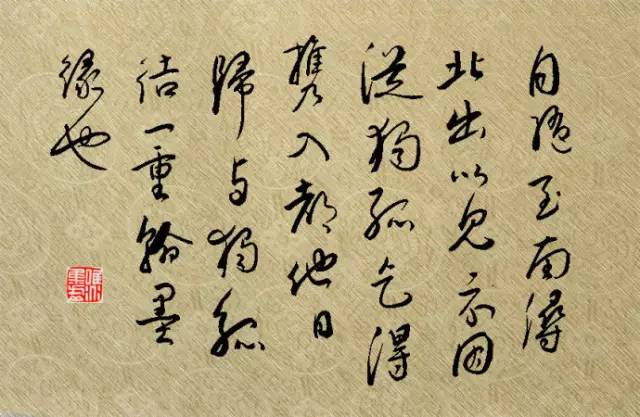 自隨至南潯
北出以見示因
從獨孤乞得
携入都他日
歸与獨孤
結一重翰墨
緣也